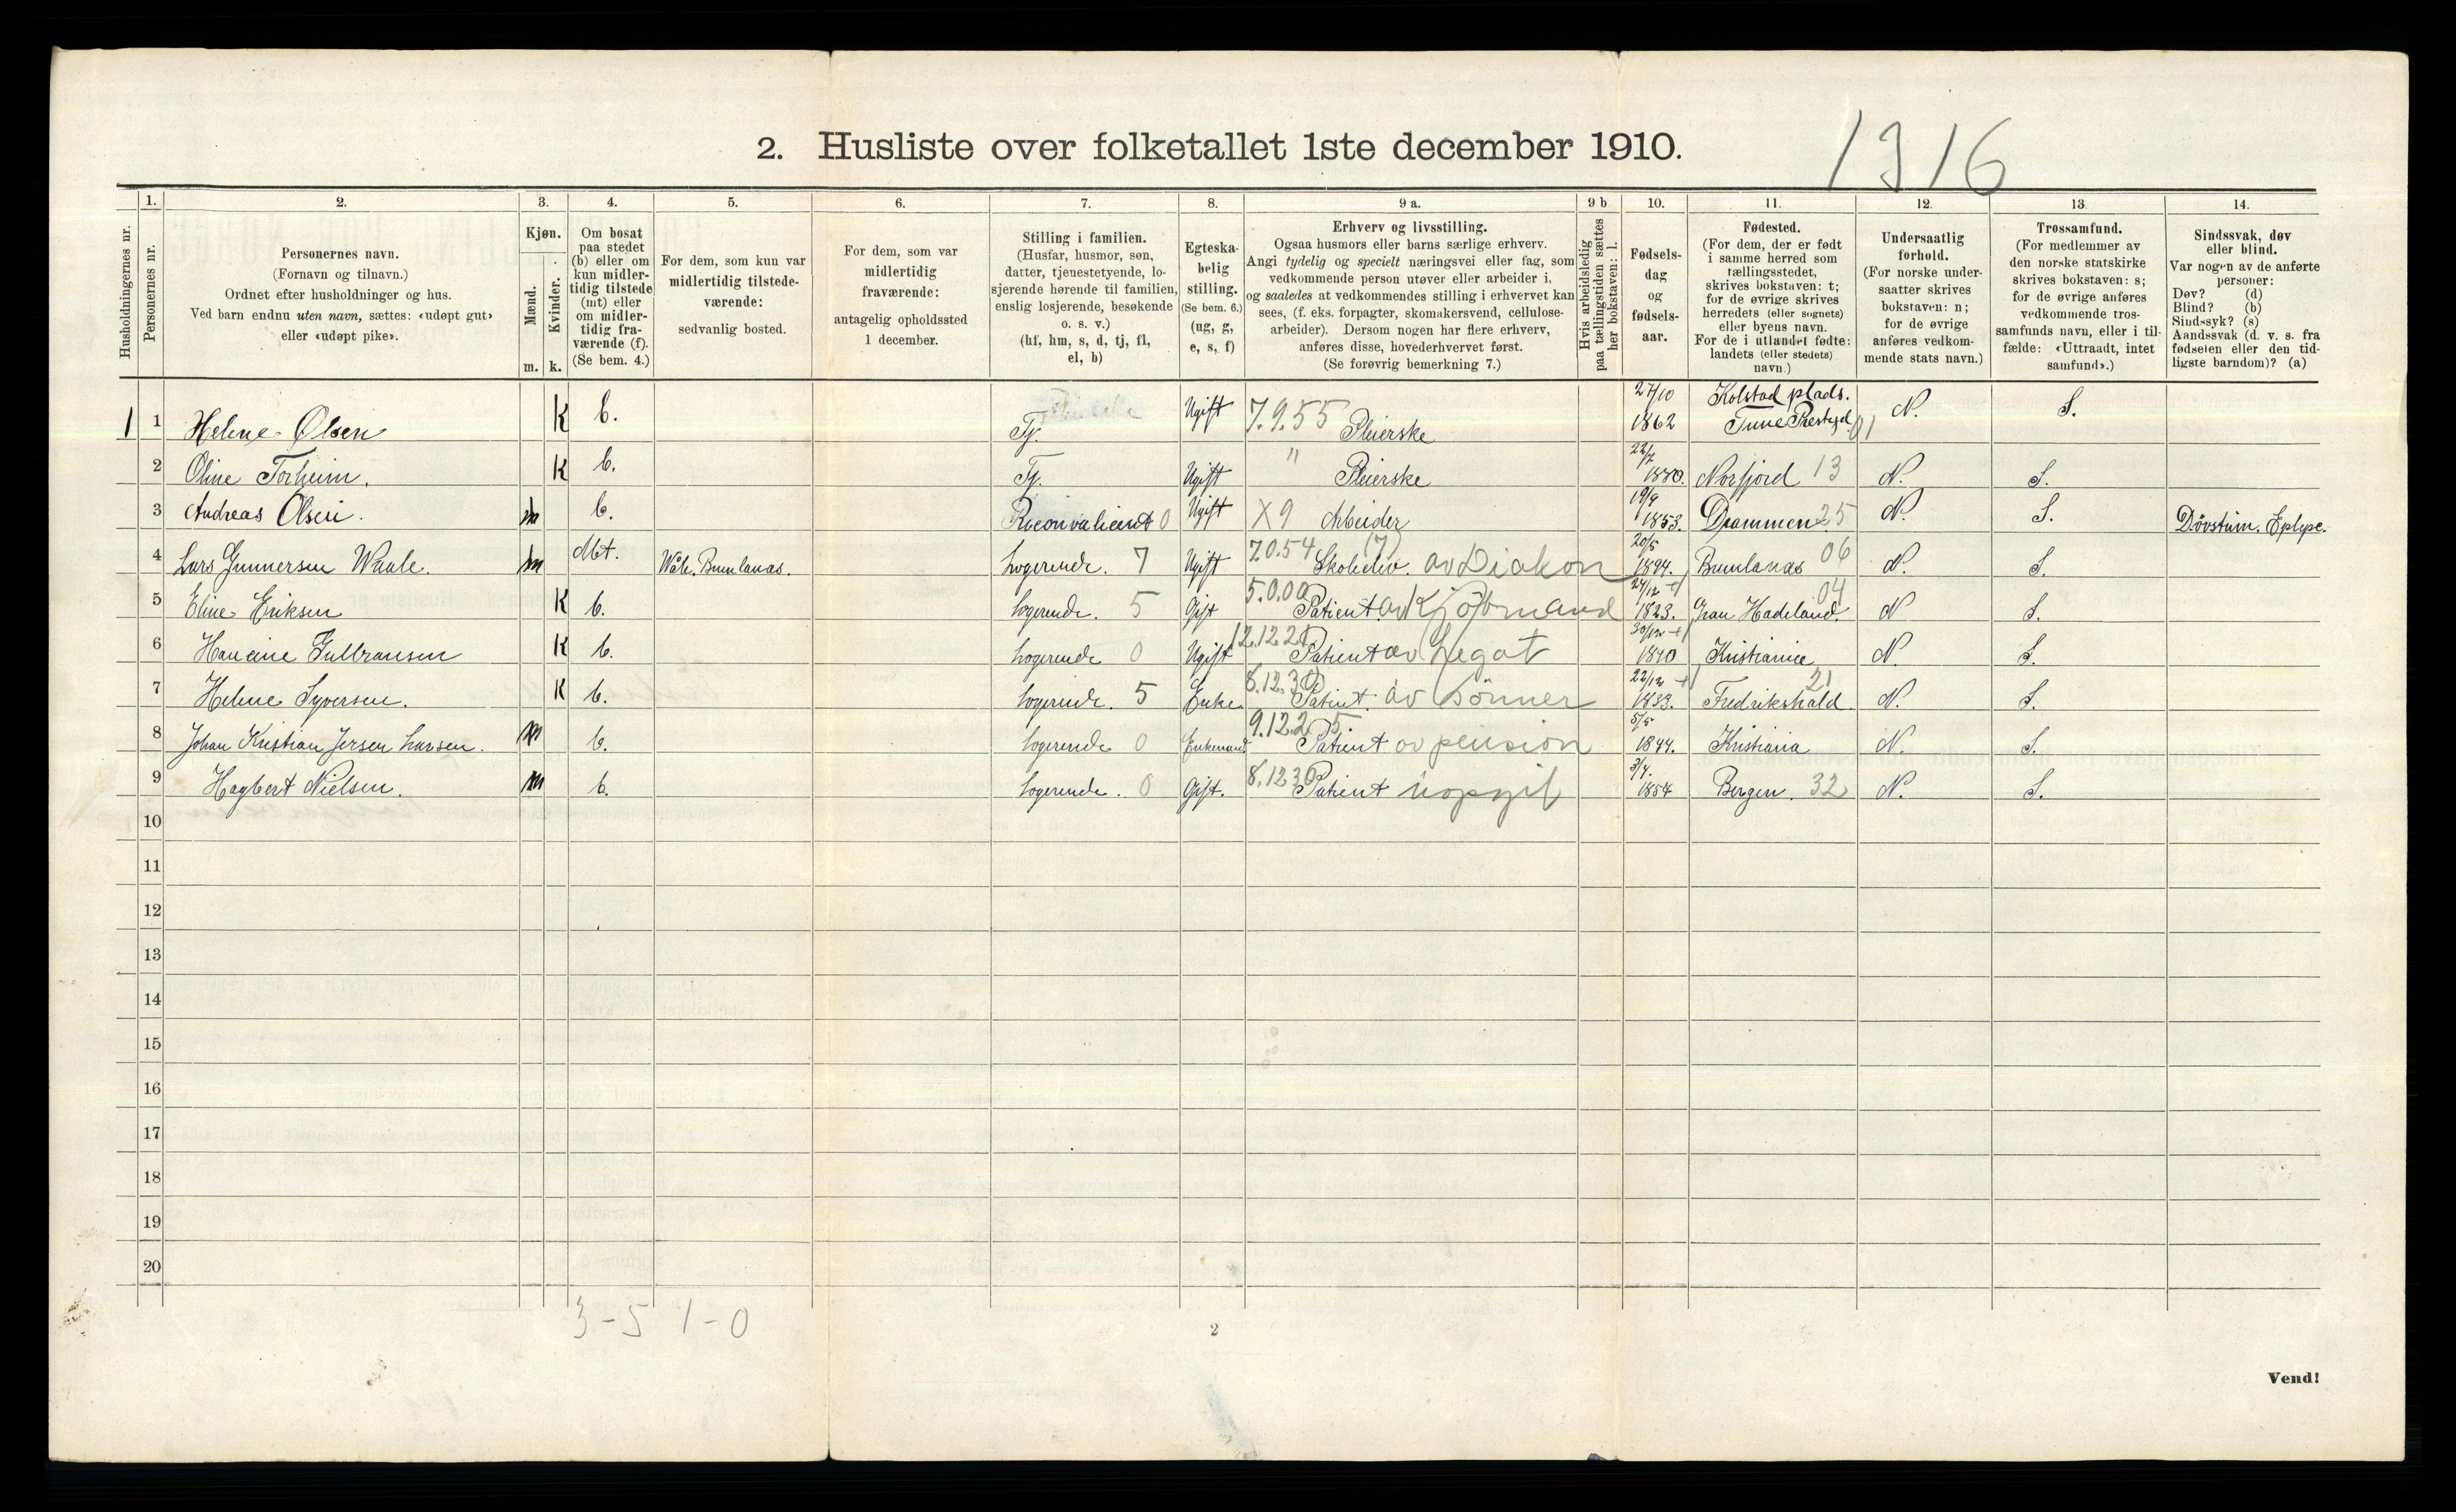 1316
2. Husliste over folketallet 1ste december 1910.
Husholdningernes nr.
1. Personernes nr.
2. Personernes navn.
(Fornavn og tilnavn.)
Ordnet efter husholdninger og hus.
Ved barn endnu uten navn, sættes: «udøpt gut»
eller «udøpt pike».
3. Kjøn.
Mænd. m.
Kvinder. k.
4. Om bosat
paa stedet
(b) eller om
kun midler-
tidig tilstede
(mt) eller
om midler-
tidig fra-
værende (f).
(Se bem. 4.)
5. For dem, som kun var
midlertidig tilstede-
værende:
sedvanlig bosted.
6. For dem, som var
midlertidig
fraværende:
antagelig opholdssted
1 december.
7. Stilling i familien.
(Husfar, husmor, søn,
datter, tjenestetyende, lo-
sjerende hørende til familien,
enslig losjerende, besøkende
o. s. v.)
(hf, hm, s, d, tj, fl,
el, b)
8. Egteska-
belig
stilling.
(Se bem. 6.)
(ug, g,
e, s, f)
9 a. Erhverv og livsstilling.
Ogsaa husmors eller barns særlige erhverv.
Angi tydelig og specielt næringsvei eller fag, som
vedkommende person utøver eller arbeider i,
og saaledes at vedkommendes stilling i erhvervet kan
sees, (f. eks. forpagter, skomakersvend, cellulose-
arbeider). Dersom nogen har flere erhverv,
anføres disse, hovederhvervet først.
(Se forøvrig bemerkning 7.)
9 b Hvis arbeidsledig
paa tællingstiden sættes
her bokstaven: l.
10. Fødsels-
dag
og
fødsels-
aar.
11. Fødested.
(For dem, der er født
i samme herred som
tællingsstedet,
skrives bokstaven: t;
for de øvrige skrives
herredets (eller sognets)
eller byens navn.
For de i utlandet fødte:
landets (eller stedets)
navn.)
12. Undersaatlig
forhold.
(For norske under-
saatter skrives
bokstaven: n;
for de øvrige
anføres vedkom-
mende stats navn.)
13. Trossamfund.
(For medlemmer av
den norske statskirke
skrives bokstaven: s;
for de øvrige anføres
vedkommende tros-
samfunds navn, eller i til-
fælde: «Uttraadt, intet
samfund».)
14. Sindssvak, døv
eller blind.
Var nogen av de anførte
personer:
Døv? (d)
Blind? (b)
Sindssyk? (s)
Aandssvak (d. v. s. fra
fødselen eller den tid-
ligste barndom)? (a)
1 1 Helene Olsen K b. Tj. Ugift 7.9.55 Pleierske 27/10 1862 Kolstad plads. Tune Prestegd. 01 N. S.
2 Oline Torheim. K b. Tj. Ugift " Pleierske 22/7 1880. Norfjord 13 N. S.
3 Andreas Olsen. m b. Reconvalicent 0 Ugift X9 Arbeider 19/9 1853. Drammen 25 N. S. Døvstum. Eplepc.
4 Lars Gunnersen Waale. m Mt. Wåle, Brunlanas. Logerende. 7 Ugift 7.0.54 (7) Skoleelev. av Diakon 20/5 1894. Brunlanas 06 N. S.
5 Eline Eriksen K b. Logerende. 5 Gift 5.0.00 Patient. av Kjøbmand 24/12 1823. Gran Hadeland. 04 N S.
6 Hansine Gulbransen K b. Logerende 0 Ugift 12.12.21 Patient av Legat 30/12 1840 Kristiania N. S.
7 Helene Syversen. K b. Logerende. 5 Enke. 8.12.30 Patient. av Sønner 22/12 1833. Fredrikshald 21 N. S.
8 Johan Kristian Jersen Larsen. m b. Logerende 0 Enkemand 9.12.25 Patient av pension 5/5 1844. Kristiania N. S.
9 Hagbert Nielsen. m b. Logerende. 0 Gift. 8.12.30 Patient uopgit 3/4. 1854 Bergen. 32 N. S.
10
11
12
13
14
15
16
17
18
19
20
3-5 1-0
2
Vend!